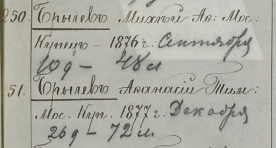 250. Брылевъ Михаил Аѳ: Мос.
Купецъ – 1876 г: Сентября
10 д – 48 л
51. Брылевъ Аѳанасій Тим:
Мос. Куп. 1877 г: Декабря
26 д – 72 л.